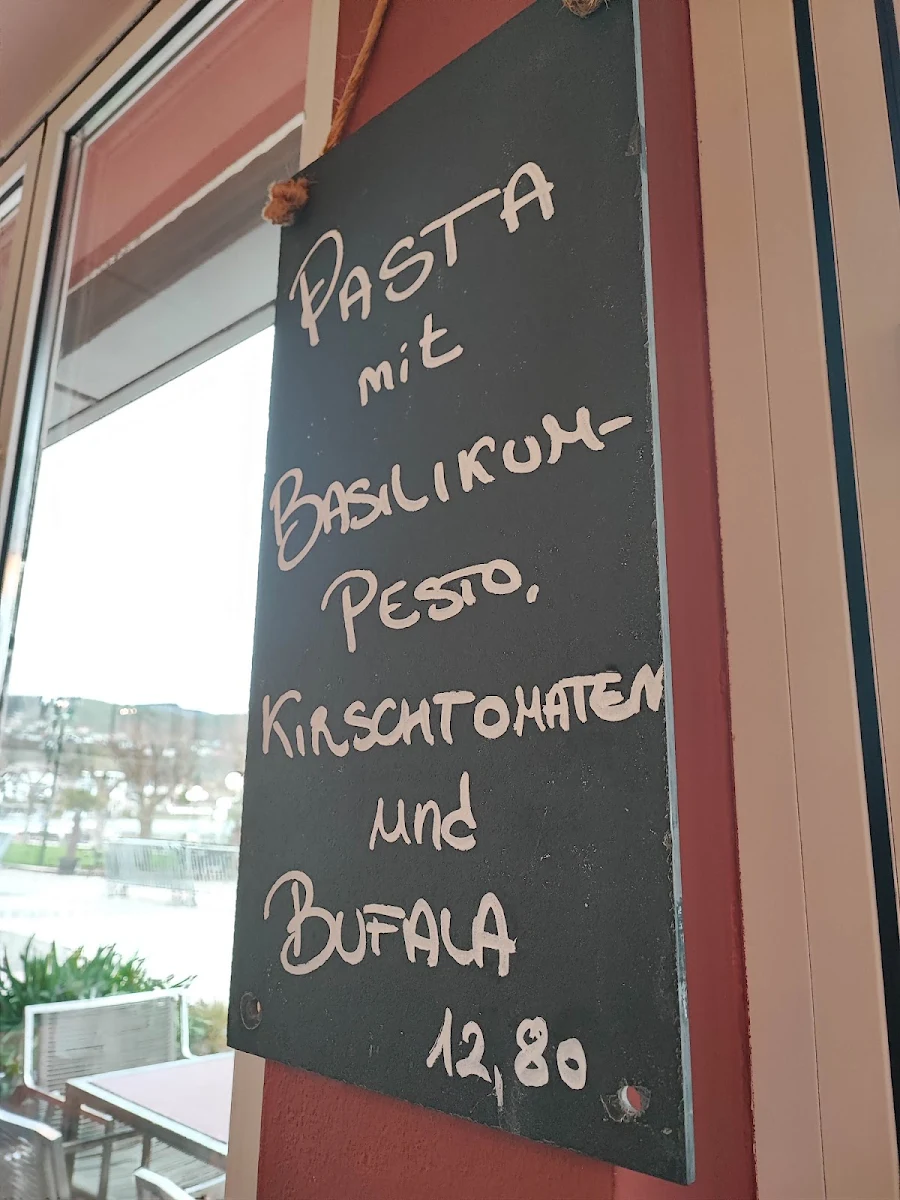 PASTA
mit
BASILIKUM-
PESTO,
KIRSCHTOMATEN
und
BUFALA
12,80